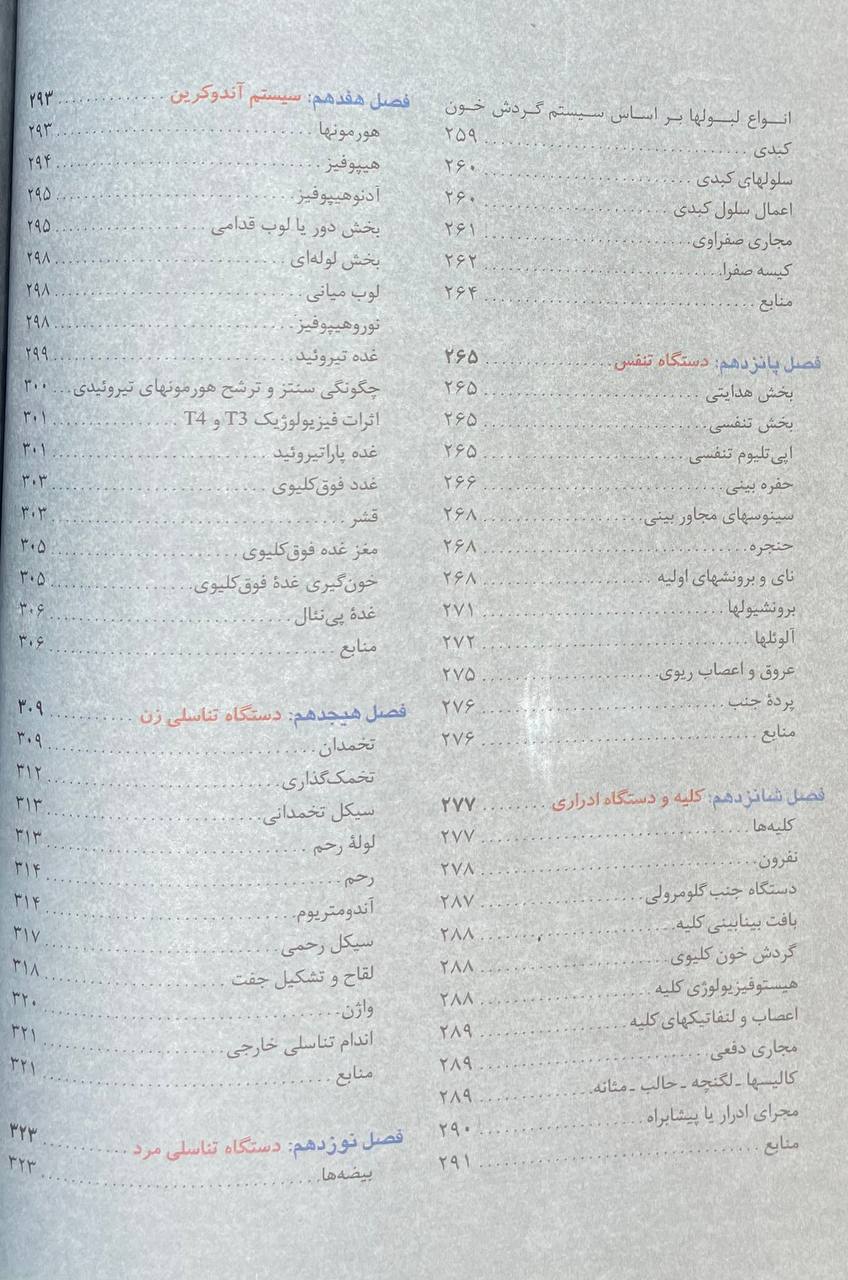 انواع لبولها بر اساس سیستم گردش خون
کبدی ........ ۲۵۹
سلولهای کبدی ........ ۲۶۰
اعمال سلول کبدی ........ ۲۶۰
مجاری صفراوی ........ ۲۶۱
کیسه صفرا ........ ۲۶۲
منابع ........ ۲۶۴
فصل پانزدهم: دستگاه تنفس ........ ۲۶۵
بخش هدایتی ........ ۲۶۵
بخش تنفسی ........ ۲۶۵
اپی‌تلیوم تنفسی ........ ۲۶۵
حفره بینی ........ ۲۶۶
سینوسهای مجاور بینی ........ ۲۶۸
حنجره ........ ۲۶۸
نای و برونشهای اولیه ........ ۲۶۸
برونشیولها ........ ۲۷۱
آلوئلها ........ ۲۷۲
عروق و اعصاب ریوی ........ ۲۷۵
پردهٔ جنب ........ ۲۷۶
منابع ........ ۲۷۶
فصل شانزدهم: کلیه و دستگاه ادراری ........ ۲۷۷
کلیه‌ها ........ ۲۷۷
نفرون ........ ۲۷۸
دستگاه جنب گلومرولی ........ ۲۸۷
بافت بینابینی کلیه ........ ۲۸۸
گردش خون کلیوی ........ ۲۸۸
هیستوفیزیولوژی کلیه ........ ۲۸۸
اعصاب و لنفاتیکهای کلیه ........ ۲۸۹
مجاری دفعی ........ ۲۸۹
کالیسها ـ لگنچه ـ حالب ـ مثانه ........ ۲۸۹
مجرای ادرار یا پیشابراه ........ ۲۹۰
منابع ........ ۲۹۱
فصل هفدهم: سیستم آندوکرین ........ ۲۹۳
هورمونها ........ ۲۹۳
هیپوفیز ........ ۲۹۴
آدنوهیپوفیز ........ ۲۹۵
بخش دور یا لوب قدامی ........ ۲۹۵
بخش لوله‌ای ........ ۲۹۸
لوب میانی ........ ۲۹۸
نوروهیپوفیز ........ ۲۹۸
غده تیروئید ........ ۲۹۹
چگونگی سنتز و ترشح هورمونهای تیروئیدی ... ۳۰۰
اثرات فیزیولوژیک T3 و T4 ........ ۳۰۱
غده پاراتیروئید ........ ۳۰۱
غدد فوق‌کلیوی ........ ۳۰۳
قشر ........ ۳۰۳
مغز غده فوق‌کلیوی ........ ۳۰۵
خون‌گیری غدهٔ فوق‌کلیوی ........ ۳۰۵
غدهٔ پی‌نئال ........ ۳۰۶
منابع ........ ۳۰۶
فصل هیجدهم: دستگاه تناسلی زن ........ ۳۰۹
تخمدان ........ ۳۰۹
تخمک‌گذاری ........ ۳۱۲
سیکل تخمدانی ........ ۳۱۳
لولهٔ رحم ........ ۳۱۳
رحم ........ ۳۱۴
آندومتریوم ........ ۳۱۴
سیکل رحمی ........ ۳۱۷
لقاح و تشکیل جفت ........ ۳۱۸
واژن ........ ۳۲۰
اندام تناسلی خارجی ........ ۳۲۱
منابع ........ ۳۲۱
فصل نوزدهم: دستگاه تناسلی مرد ........ ۳۲۳
بیضه‌ها ........ ۳۲۳